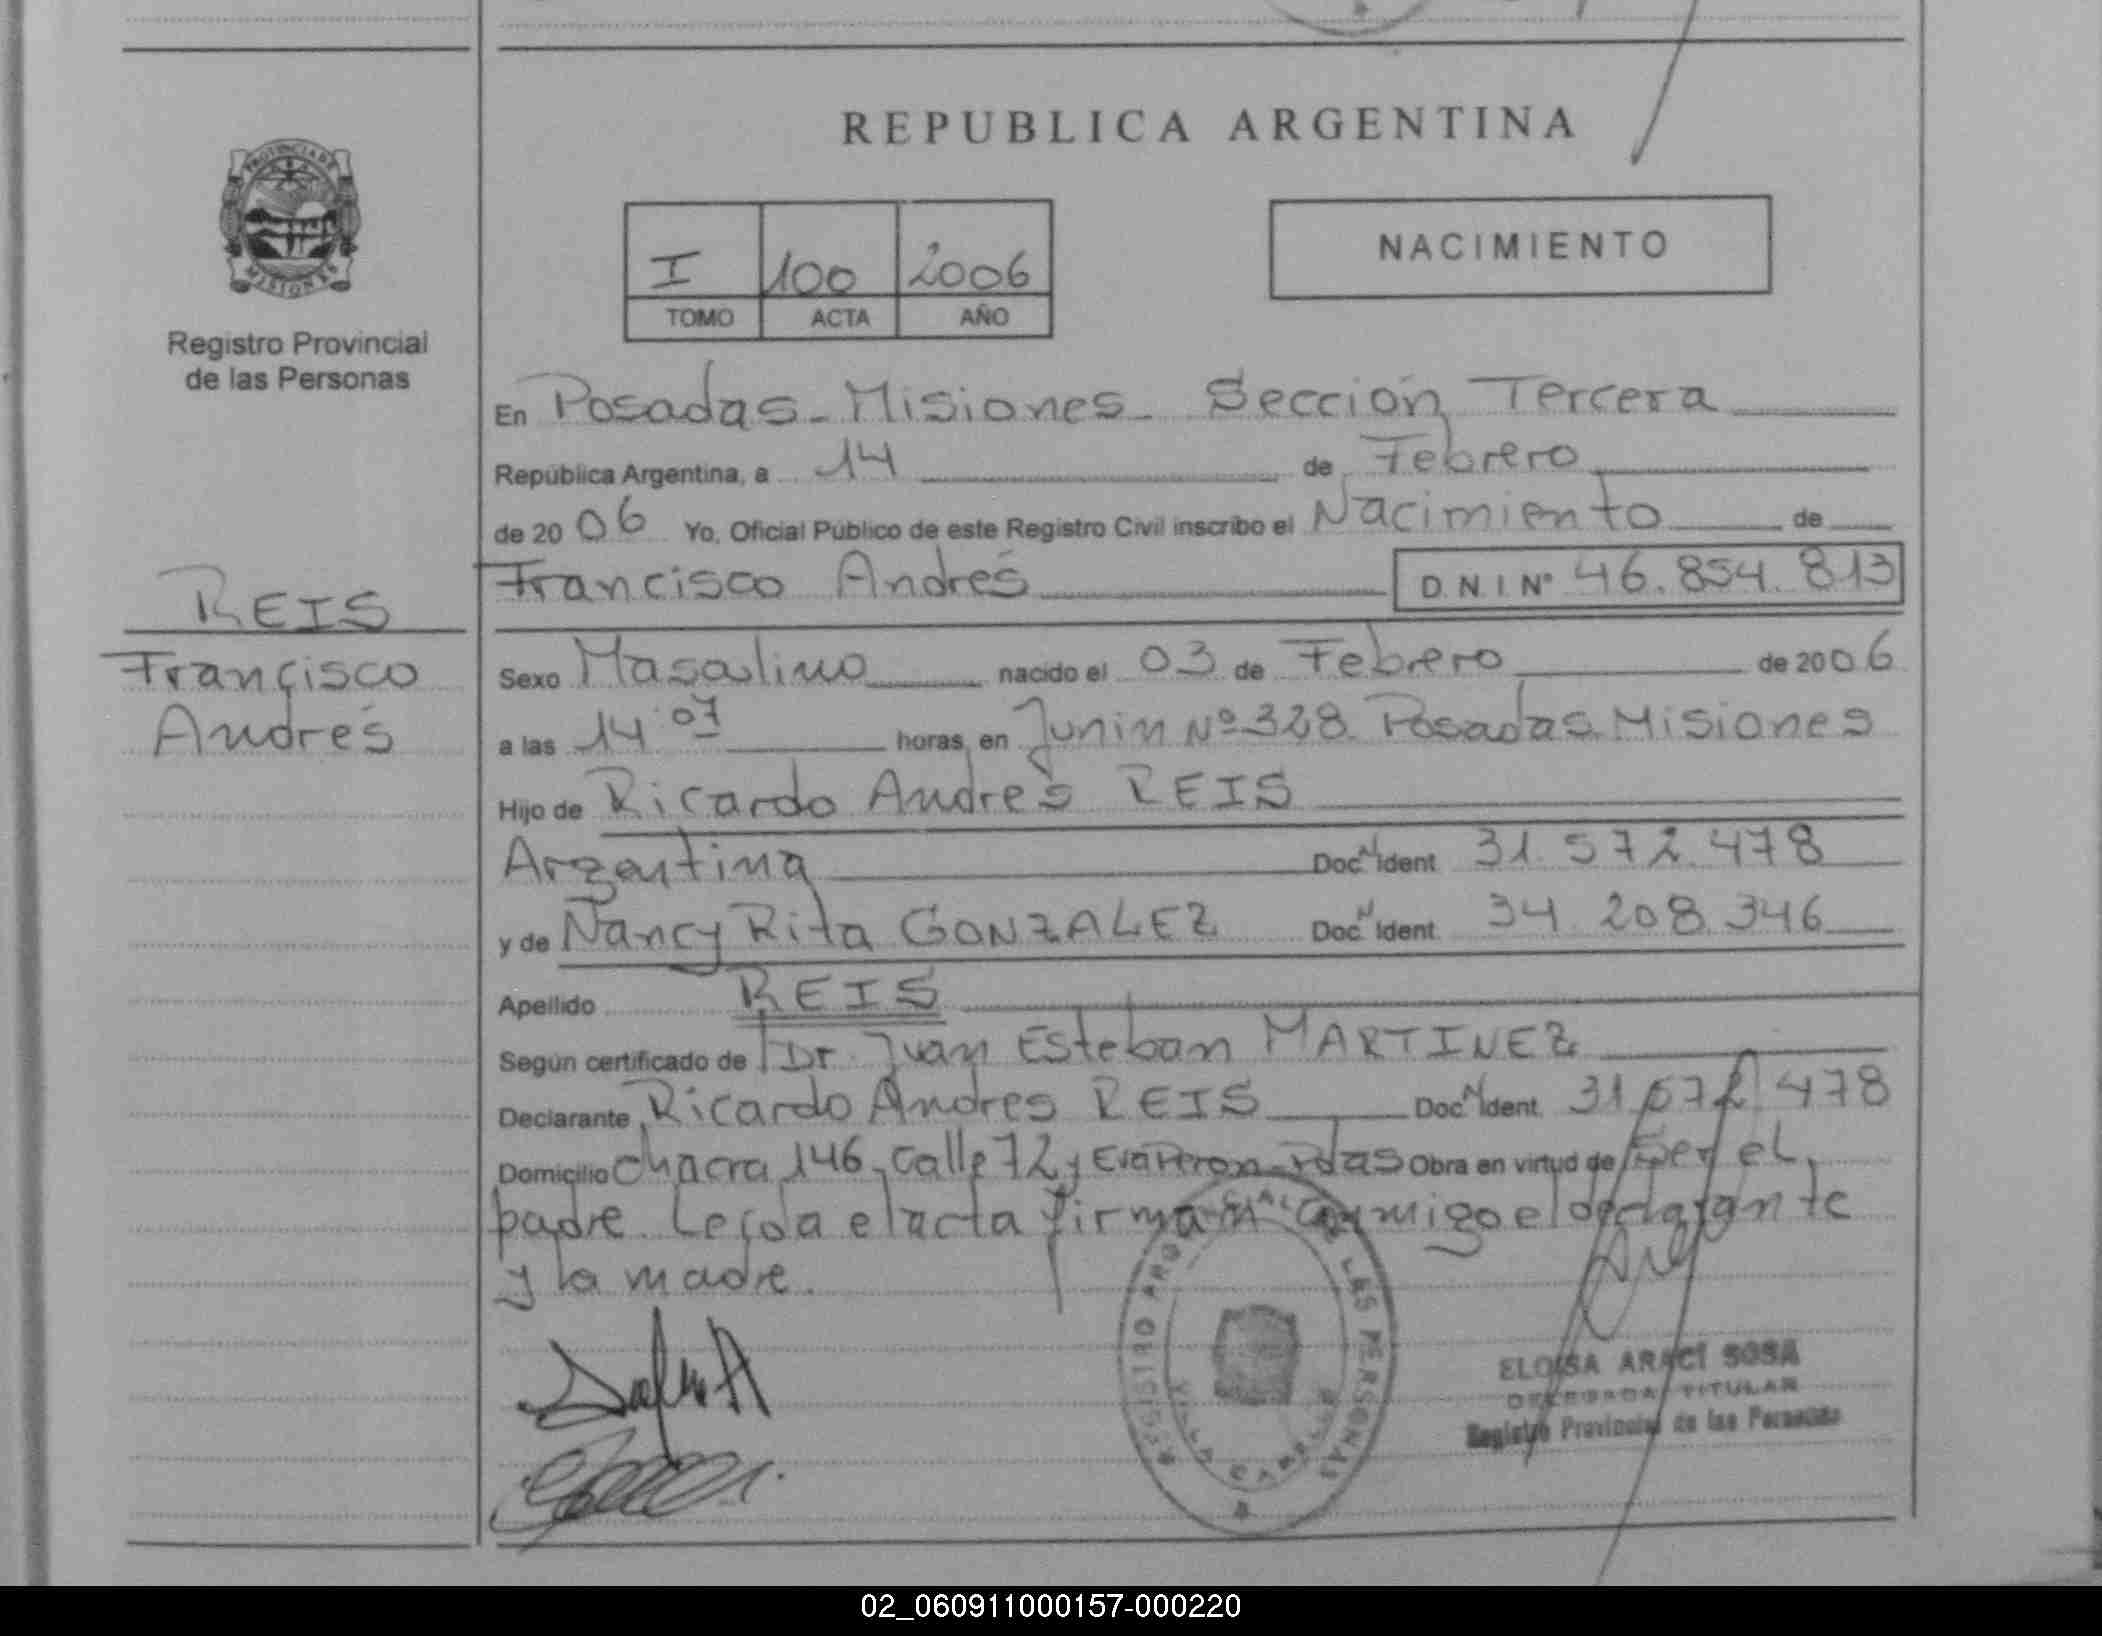 REPUBLICA ARGENTINA
PROVINCIA DE
MISIONES
Registro Provincial
de las Personas
I 100 2006
TOMO ACTA AÑO
NACIMIENTO
En Posadas - Misiones - Sección Tercera
República Argentina, a 14 de Febrero
de 20 06 Yo, Oficial Público de este Registro Civil inscribo el Nacimiento de
REIS
Francisco
Andrés
Francisco Andrés D.N.I. Nº 46.854.813
Sexo Masculino nacido el 03 de Febrero de 20 06
a las 14 07 horas, en Junin Nº 328 Posadas Misiones
Hijo de Ricardo Andrés REIS
Argentina Doc. N Ident 31.572.478
y de Nancy Rita GONZALEZ Doc. N Ident. 34.208.346
Apellido REIS
Según certificado de Dr. Juan Esteban MARTINEZ
Declarante Ricardo Andres REIS Doc. N Ident. 31.572.478
Domicilio Chacra 146, Calle 72 y Eva Peron - Pdas Obra en virtud de ser el
padre. Leída el acta firman conmigo el declarante
y la madre.
LAS PERSONAS
ELOISA ARACI SOSA
DELEGADA TITULAR
Registro Provincial de las Personas
02_060911000157-000220